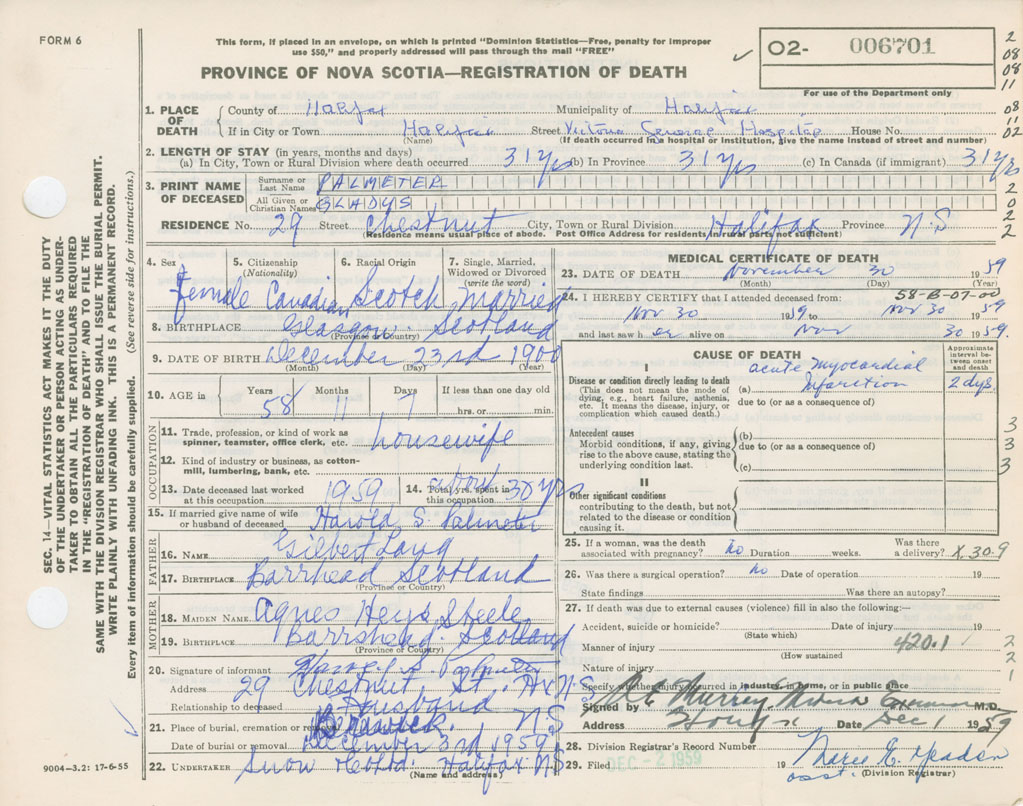 FORM 6
This form, if placed in an envelope, on which is printed "Dominion Statistics—Free, penalty for improper
use $50," and properly addressed will pass through the mail "FREE"
PROVINCE OF NOVA SCOTIA—REGISTRATION OF DEATH
✓ 02- 006701
For use of the Department only
2
08
08
11
08
11
02
2
0
2
2
1. PLACE OF DEATH County of Halifax Municipality of Halifax
If in City or Town Halifax Street Victoria General Hospital House No.
(Name) (If death occurred in a hospital or institution, give the name instead of street and number)
2. LENGTH OF STAY (in years, months and days)
(a) In City, Town or Rural Division where death occurred 31 yrs (b) In Province 31 yrs (c) In Canada (if immigrant) 31 yrs
3. PRINT NAME OF DECEASED Surname or Last Name PALMETER
All Given or Christian Names GLADYS
RESIDENCE No. 29 Street Chestnut City, Town or Rural Division Halifax Province N.S
(Residence means usual place of abode. Post Office Address for residents in rural parts not sufficient)
SEC. 14—VITAL STATISTICS ACT MAKES IT THE DUTY
OF THE UNDERTAKER OR PERSON ACTING AS UNDER-
TAKER TO OBTAIN ALL THE PARTICULARS REQUIRED
IN THE "REGISTRATION OF DEATH" AND TO FILE THE
SAME WITH THE DIVISION REGISTRAR WHO SHALL ISSUE THE BURIAL PERMIT.
WRITE PLAINLY WITH UNFADING INK. THIS IS A PERMANENT RECORD.
Every item of information should be carefully supplied. (See reverse side for instructions.)
4. Sex 5. Citizenship (Nationality) 6. Racial Origin 7. Single, Married, Widowed or Divorced (write the word)
female Canadian Scotch Married
8. BIRTHPLACE Glasgow. Scotland
(Province or Country)
9. DATE OF BIRTH December 23rd 1900
(Month) (Day) (Year)
10. AGE in Years 58 Months 11 Days 7 If less than one day old
hrs. or min.
OCCUPATION
11. Trade, profession, or kind of work as spinner, teamster, office clerk, etc. housewife
12. Kind of industry or business, as cotton-mill, lumbering, bank, etc.
13. Date deceased last worked at this occupation 1959 14. Total yrs. spent in this occupation about 30 yrs
15. If married give name of wife or husband of deceased Harold S Palmeter
FATHER
16. NAME Gilbert Lang
17. BIRTHPLACE Barrhead Scotland
(Province or Country)
MOTHER
18. MAIDEN NAME Agnes Heys Steele
19. BIRTHPLACE Barrshead. Scotland
(Province or Country)
20. Signature of informant Harold S. Palmeter
Address 29 Chestnut St. Hx N.S
Relationship to deceased Husband
21. Place of burial, cremation or removal Berwick. N.S
Date of burial or removal December 3rd 1959
22. UNDERTAKER Snow Co Ltd. Halifax NS
(Name and address)
9004-3.2: 17-6-55
MEDICAL CERTIFICATE OF DEATH
23. DATE OF DEATH November 30 1959
(Month) (Day) (Year)
58-B-07-00
24. I HEREBY CERTIFY that I attended deceased from:
Nov 30 1959 to Nov 30 1959
and last saw her alive on Nov 30 1959.
CAUSE OF DEATH
Approximate interval between onset and death
I
Disease or condition directly leading to death
(This does not mean the mode of dying, e.g., heart failure, asthenia, etc. It means the disease, injury, or complication which caused death.)
(a) acute myocardial infarction 2 dys.
due to (or as a consequence of)
Antecedent causes
Morbid conditions, if any, giving rise to the above cause, stating the underlying condition last.
(b)
due to (or as a consequence of)
(c)
3
3
3
II
Other significant conditions
contributing to the death, but not related to the disease or condition causing it.
25. If a woman, was the death associated with pregnancy? no Duration weeks. Was there a delivery? X.30.9
26. Was there a surgical operation? no Date of operation 19
State findings Was there an autopsy?
27. If death was due to external causes (violence) fill in also the following:—
Accident, suicide or homicide? Date of injury 19
(State which)
Manner of injury 420.1
(How sustained)
2
2
1
Nature of injury
Specify whether injury occurred in industry, in home, or in public place
Signed by Murrey M.D.
Address Date Dec 1 1959
28. Division Registrar's Record Number
29. Filed DEC - 2 1959 19 Marie E. Meaden
asst. (Division Registrar)